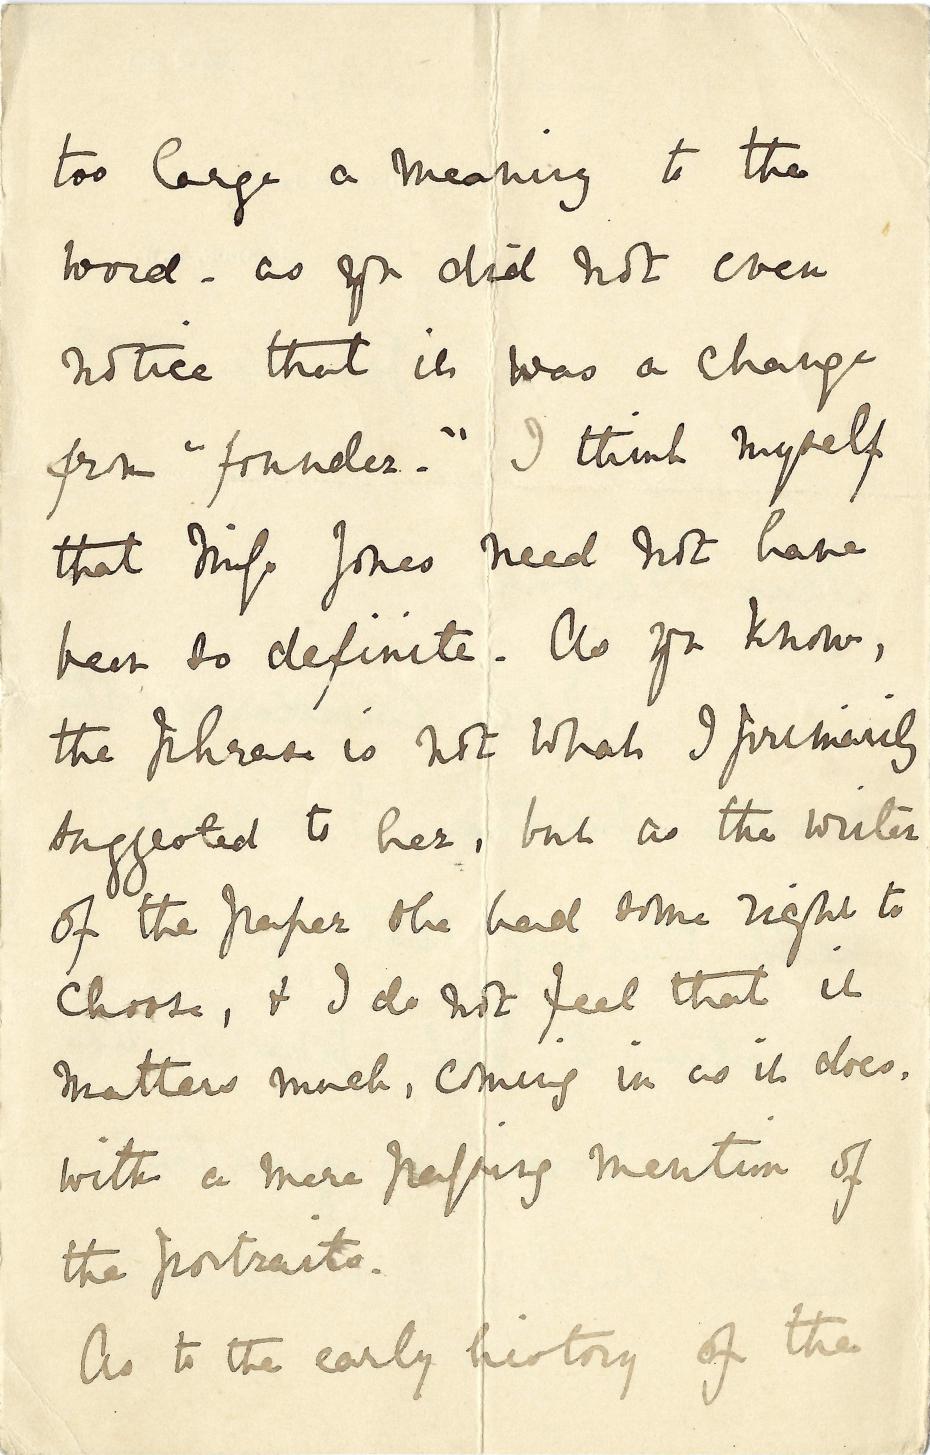 too large a meaning to the
word - as yr did not even
notice that it was a change
from "founder." I think myself
that Miss Jones need not have
been so definite. As yr know,
the phrase is not what I primarily
suggested to her, but as the writer
of the paper she had some right to
choose, & I do not feel that it
matters much, coming in as it does,
with a mere passing mention of
the portraits.
As to the early history of the